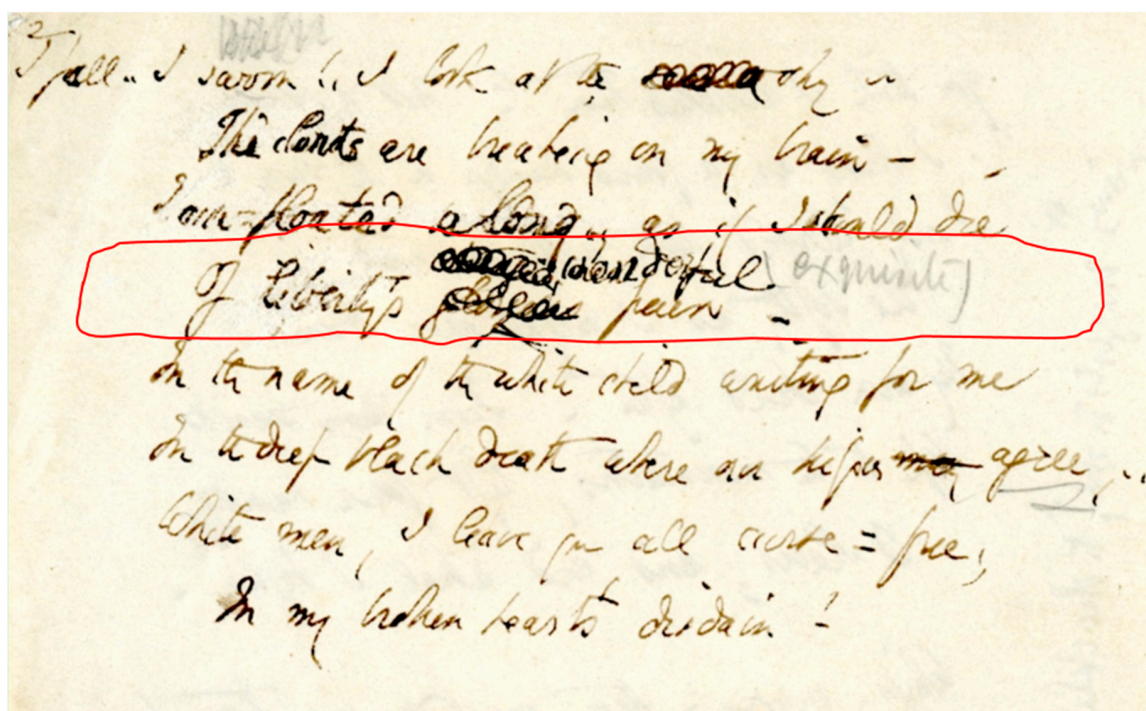 I fall .. I swoon !. I look at the sky ..
The clouds are breaking on my brain –
I am floated along, as if I should die
wonderful (exquisite)
Of Liberty's pain –
In the name of the white child waiting for me
In the deep black death where our kisses agree ..
White men, I leave you all curse = free,
In my broken heart's disdain !